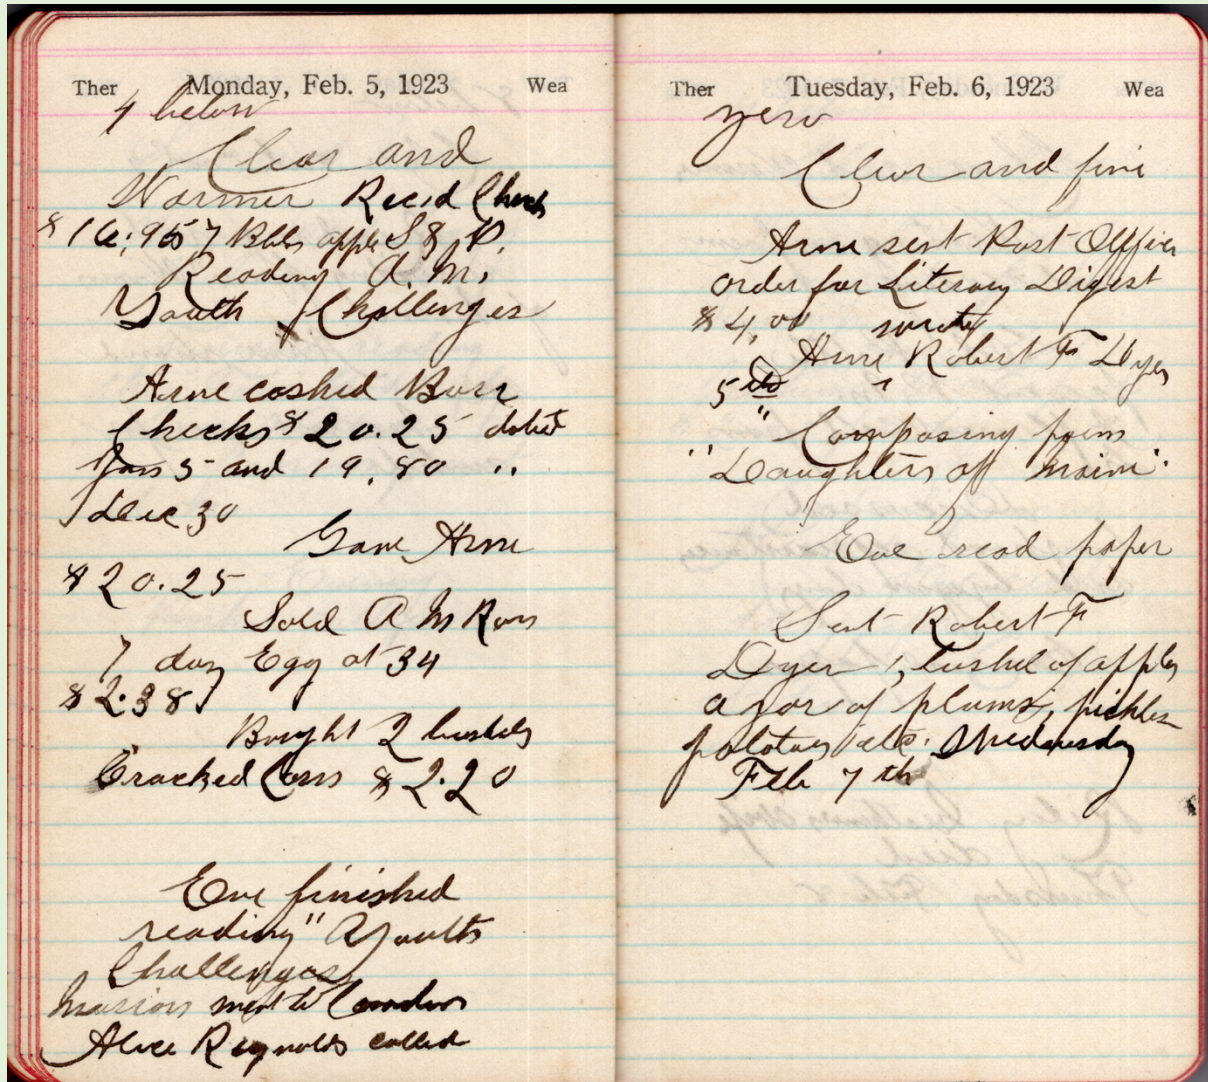 Ther Monday, Feb. 5, 1923 Wea
4 below
Clear and
Warmer Recd Check
$16.95 7 Bbls apples S & P.
Reading A. M.
Youth Challenges
Arne cashed Burr
Checks $20.25 dated
Jan 5 and 19.80 "
Dec 30
Gave Arne
$20.25
Sold A M Ross
7 doz Egg at 34
$2.38
Bought 2 bushels
Cracked Corn $2.20
Eve finished
reading "A Youth
Challenges
Marion went to Camden
Alice Reynolds called
Ther Tuesday, Feb. 6, 1923 Wea
zero
Clear and fine
Arne sest Post Office
order for Literary Digest
$4.00 wrote
Arne Robert F Dyer
5
" Composing poem
"Daughters of Maine".
Eve read paper
Sent Robert F
Dyer 1, bushel of apples
a jar of plums, pickles
potatoes etc. Wednesday
Feb 7th